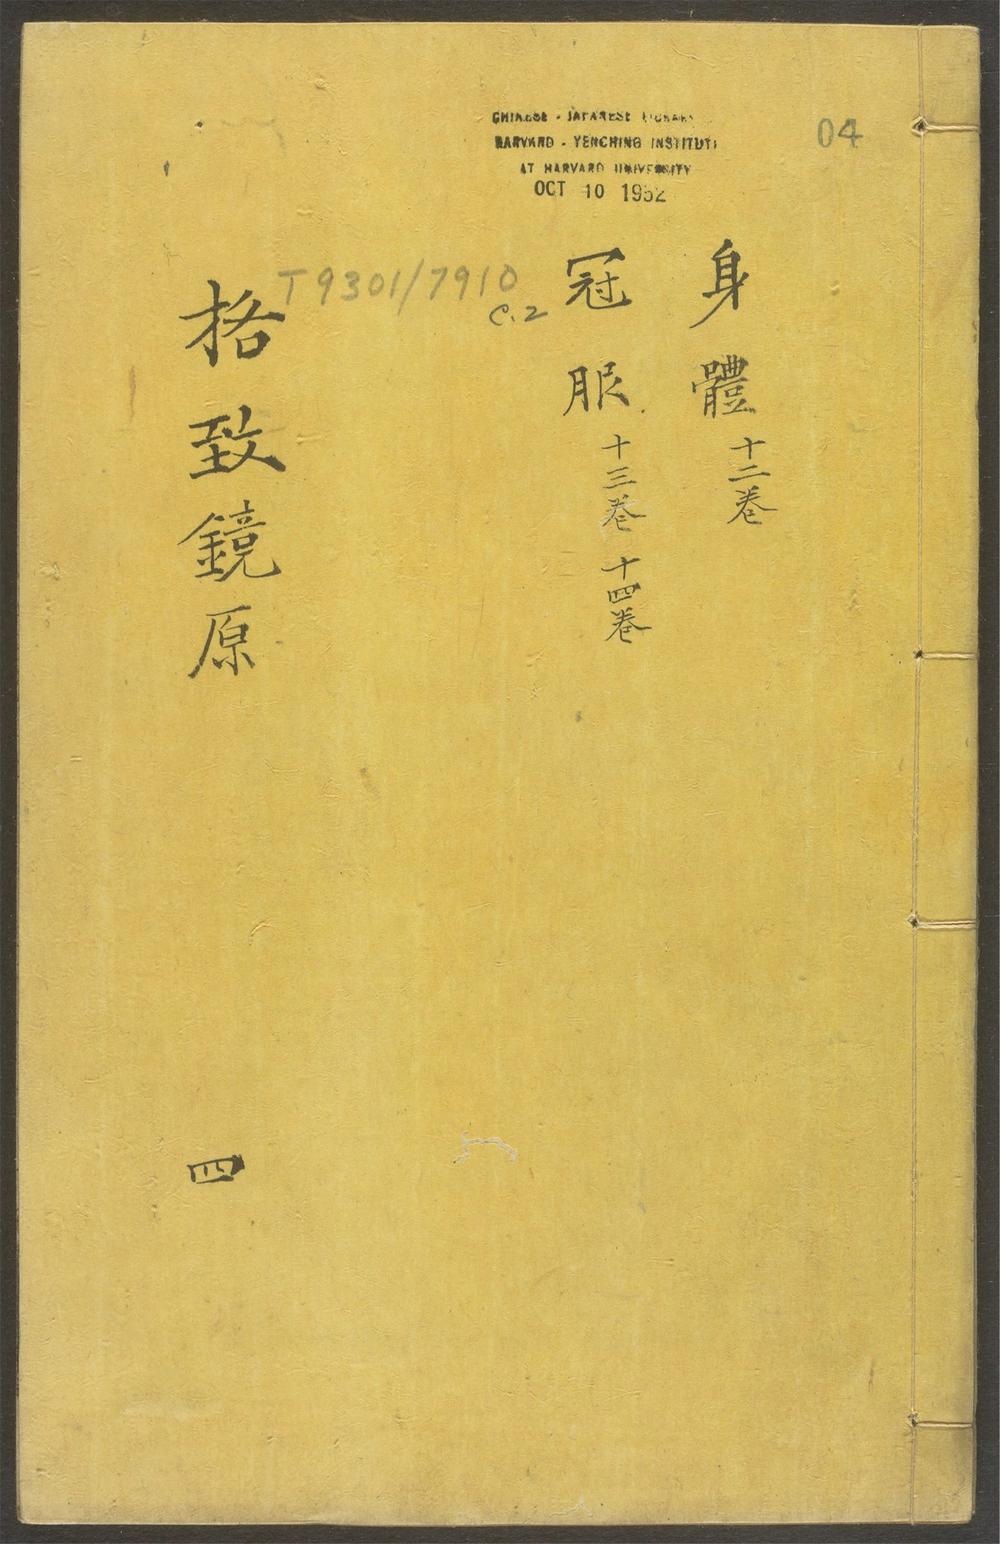 CHINESE - JAPANESE LIBRARY
HARVARD - YENCHING INSTITUTE
AT HARVARD UNIVERSITY
OCT 10 1952
04
身體 十二卷
冠服 十三卷 十四卷
T9301/7910
C.2
格致鏡原
四